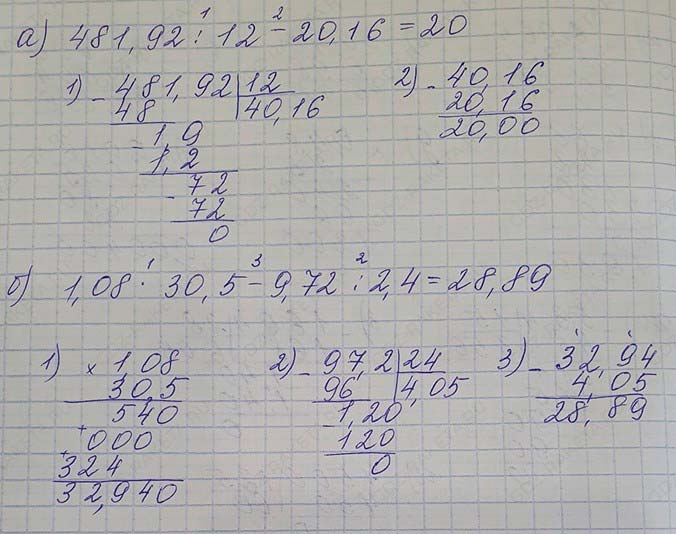 а) 481,92 : 12 - 20,16 = 20
1) - 481,92 | 12
48 | 40,16
- 1,9
1,2
- 72
72
0
2) - 40,16
20,16
20,00
б) 1,08 · 30,5 - 9,72 : 2,4 = 28,89
1) × 1,08
30,5
540
+ 000
+ 324
32,940
2) - 97,2 | 24
96 | 4,05
- 1,20
120
0
3) - 32,94
4,05
28,89